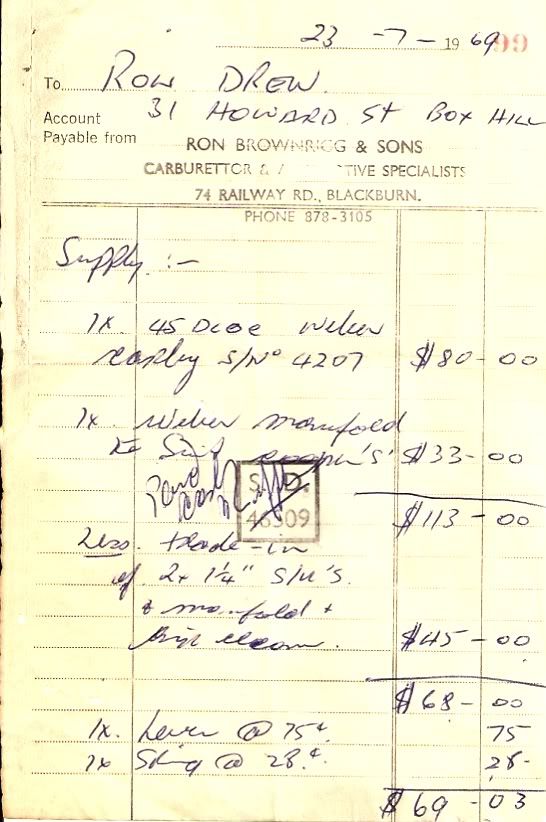 23 - 7 - 1969 99
To Ron DREW.
31 HOWARD St BOX HILL
Account
Payable from
RON BROWNRIGG & SONS
CARBURETTOR & A TIVE SPECIALISTS
74 RAILWAY RD., BLACKBURN.
PHONE 878-3105
Supply :-
1x 45 DCOE Weber
S/No 4207 $80-00
1x Weber manifold
to Suit Cooper 'S' $33-00
Paid
Cash
S. D.
46309
$113-00
Less trade-in
of 2x 1¼" S/U'S.
& manifold +
air cleaner. $45-00
$68-00
1x. Lever @ 75¢. 75
1x @ 28¢. 28-
$69-03